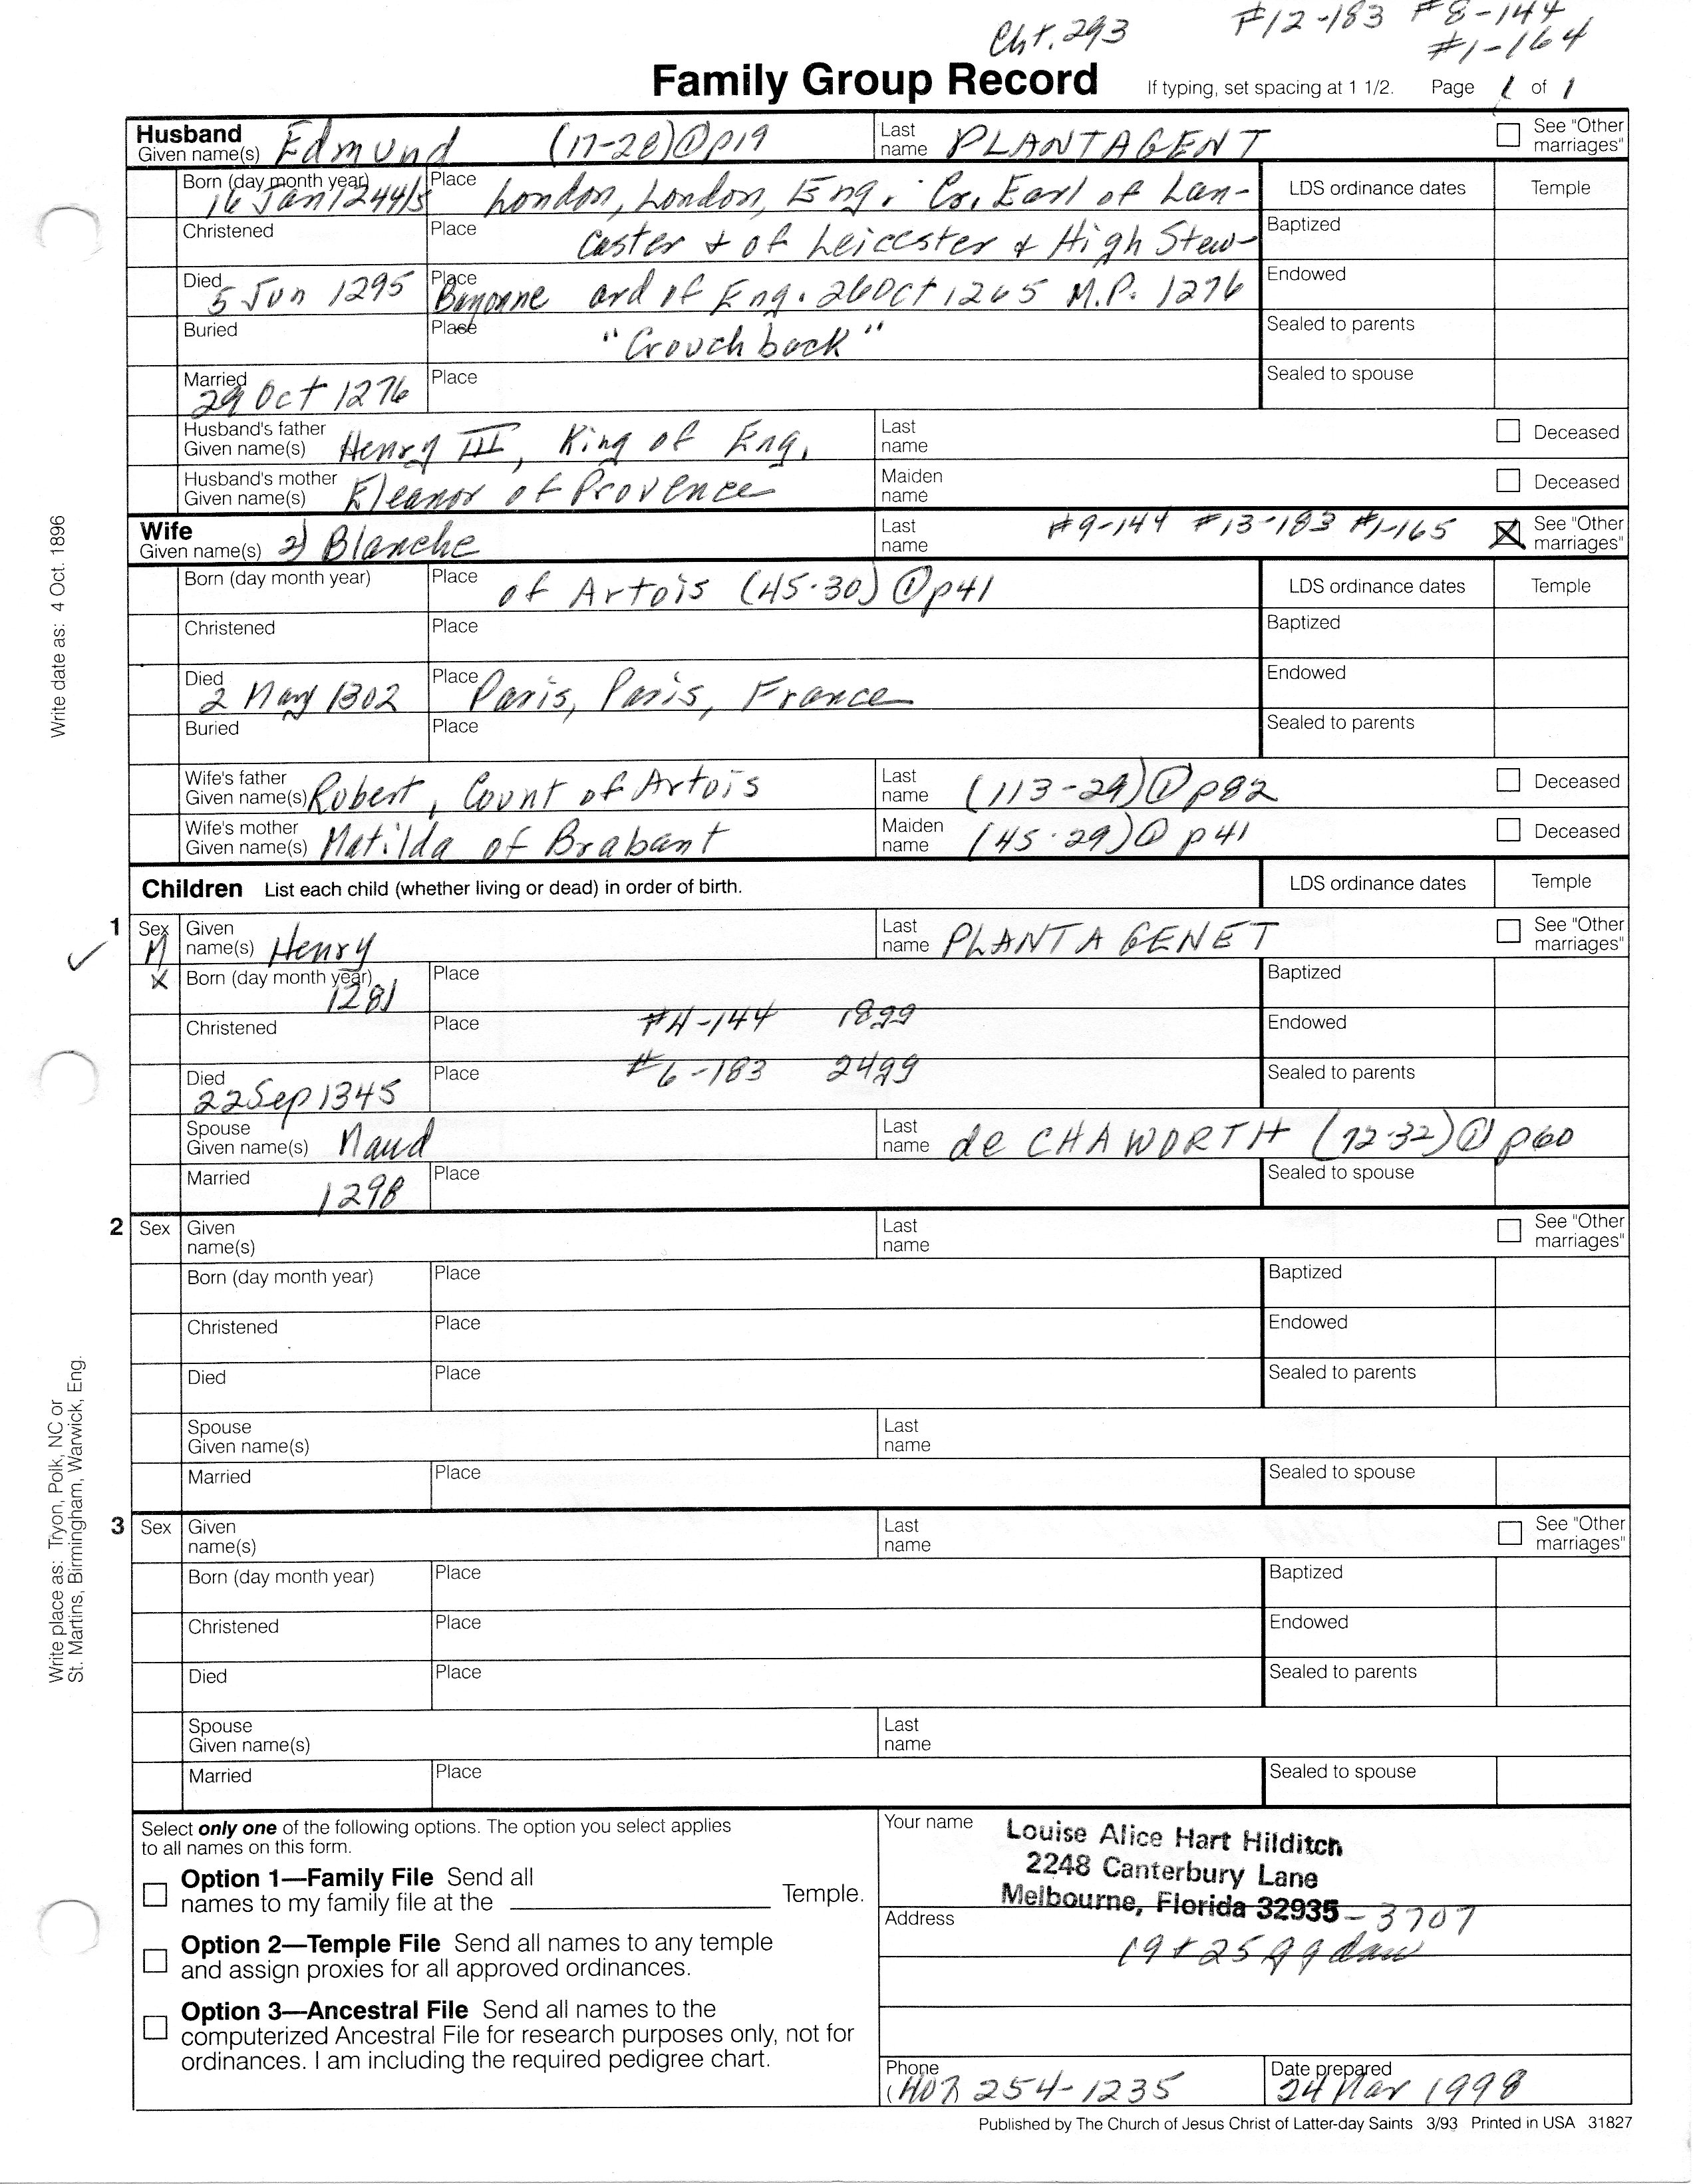 Cht. 293 #12-183 #8-144
#1-164
Family Group Record If typing, set spacing at 1 1/2. Page 1 of 1
Husband
Given name(s) Edmund (17-28)①p19 Last name PLANTAGENT See "Other marriages"
Born (day month year) 16 Jan 1244/5 Place London, London, Eng. Cr. Earl of Lan- LDS ordinance dates Temple
Christened Place caster & of Leicester & High Stew- Baptized
Died 5 Jun 1295 Place Bayonne ard of Eng. 26 Oct 1265 M.P. 1276 Endowed
Buried Place "Crouchback" Sealed to parents
Married 29 Oct 1276 Place Sealed to spouse
Husband's father
Given name(s) Henry III, King of Eng. Last name Deceased
Husband's mother
Given name(s) Eleanor of Provence Maiden name Deceased
Wife
Given name(s) 2) Blanche Last name #9-144 #13-183 #1-165 See "Other marriages"
Born (day month year) Place of Artois (45-30)①p41 LDS ordinance dates Temple
Christened Place Baptized
Died 2 May 1302 Place Paris, Paris, France Endowed
Buried Place Sealed to parents
Wife's father
Given name(s) Robert, Count of Artois Last name (113-29)①p82 Deceased
Wife's mother
Given name(s) Matilda of Brabant Maiden name (45-29)① p41 Deceased
Children List each child (whether living or dead) in order of birth. LDS ordinance dates Temple
1 Sex M Given name(s) Henry Last name PLANTAGENET See "Other marriages"
X Born (day month year) 1281 Place Baptized
Christened Place #4-144 1899 Endowed
Died 22 Sep 1345 Place #6-183 2499 Sealed to parents
Spouse
Given name(s) Maud Last name de CHAWORTH (72-32)① p60
Married 1298 Place Sealed to spouse
2 Sex Given name(s) Last name See "Other marriages"
Born (day month year) Place Baptized
Christened Place Endowed
Died Place Sealed to parents
Spouse
Given name(s) Last name
Married Place Sealed to spouse
3 Sex Given name(s) Last name See "Other marriages"
Born (day month year) Place Baptized
Christened Place Endowed
Died Place Sealed to parents
Spouse
Given name(s) Last name
Married Place Sealed to spouse
Select only one of the following options. The option you select applies
to all names on this form.
Option 1—Family File Send all
names to my family file at the Temple.
Option 2—Temple File Send all names to any temple
and assign proxies for all approved ordinances.
Option 3—Ancestral File Send all names to the
computerized Ancestral File for research purposes only, not for
ordinances. I am including the required pedigree chart.
Your name Louise Alice Hart Hilditch
2248 Canterbury Lane
Melbourne, Florida 32935-3707
Address
19 & 25 gg dau
Phone (407) 254-1235 Date prepared 24 Mar 1998
Published by The Church of Jesus Christ of Latter-day Saints 3/93 Printed in USA 31827
Write date as: 4 Oct. 1896
Write place as: Tryon, Polk, NC or
St. Martins, Birmingham, Warwick, Eng.